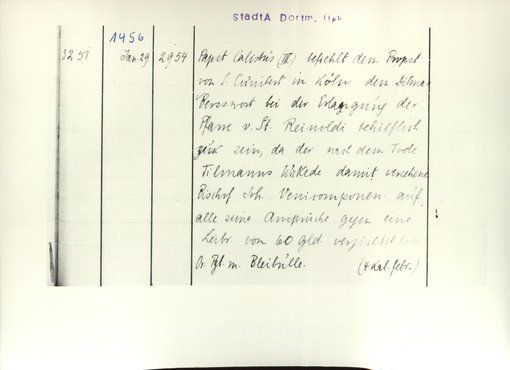 StadtA Dortm.
1456
3251 Jan 29 2954 Papst Calistus (III) befiehlt dem Propst
von S. Cunibert in Köln dem Ditmar
Berswort bei der Erlangung der
Pfarre v. St. Reinoldi behilflich
zu sein, da der nach dem Tode
Tilmanns Wickede damit versehene
Bischof Joh. auf
alle seine Ansprüche gegen eine
Leibr. von 60 gld. verzichtet
Or Pgt. m. Bleibulle. (4 Kal. febr.)